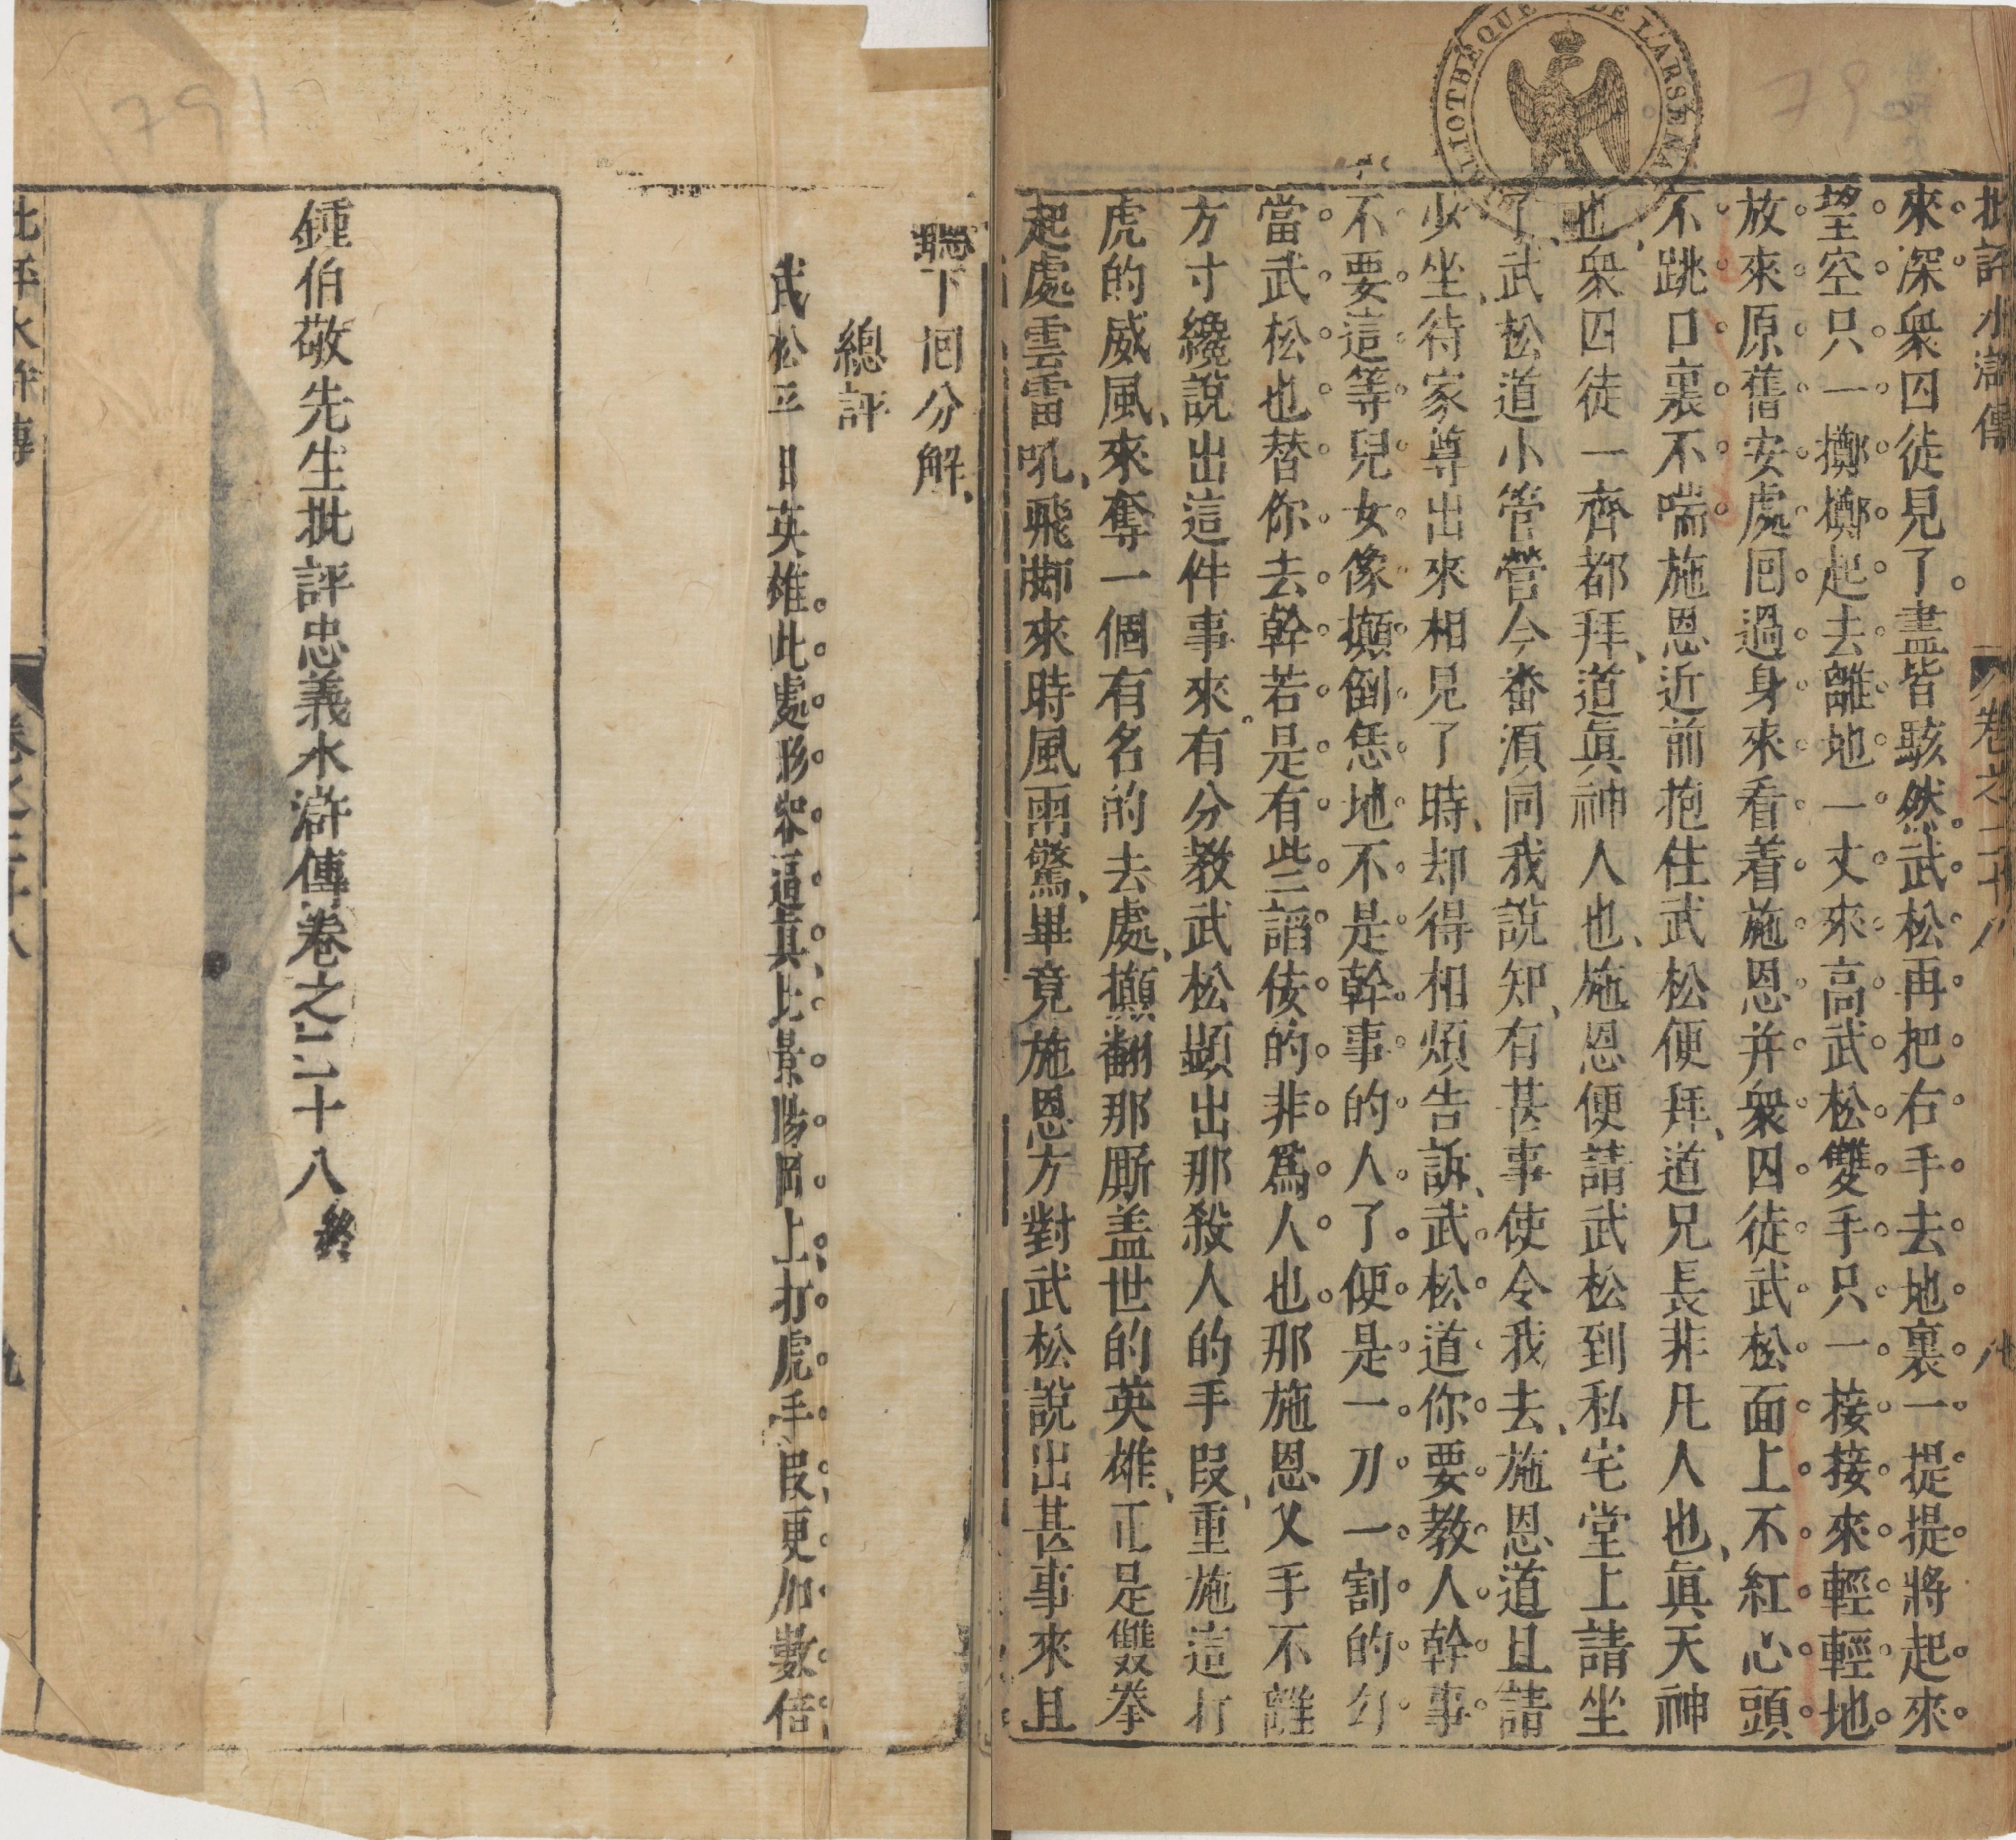 批評水滸傳 卷之二十八 八
來深衆囚徒見了盡皆駭然武松再把右手去地裏一提提將起來
望空只一擲擲起去離地一丈來高武松雙手只一接接來輕輕地
放來原舊安處囘過身來看着施恩并衆囚徒武松面上不紅心頭
不跳口裏不喘施恩近前抱住武松便拜道兄長非凡人也真天神
也衆囚徒一齊都拜道真神人也施恩便請武松到私宅堂上請坐
了武松道小管營今番須同我說知有甚事使令我去施恩道且請
少坐待家尊出來相見了時却得相煩告訴武松道你要教人幹事
不要這等兒女像攧倒恁地不是幹事的人了便是一刀一割的勾
當武松也替你去幹若是有些謟佞的非爲人也那施恩叉手不離
方寸纔說出這件事來有分教武松顯出那殺人的手段重施這打
虎的威風來奪一個有名的去處攧翻那厮盖世的英雄正是雙拳
起處雲雷吼飛脚來時風雨驚畢竟施恩方對武松說出甚事來且
聽下囘分解
總評
武松平日英雄此處形容逼真比景陽岡上打虎手段更加數倍
鍾伯敬先生批評忠義水滸傳卷之二十八終
卷之二十八 九
BIBLIOTHÈQUE DE L'ARSENAL
79
791